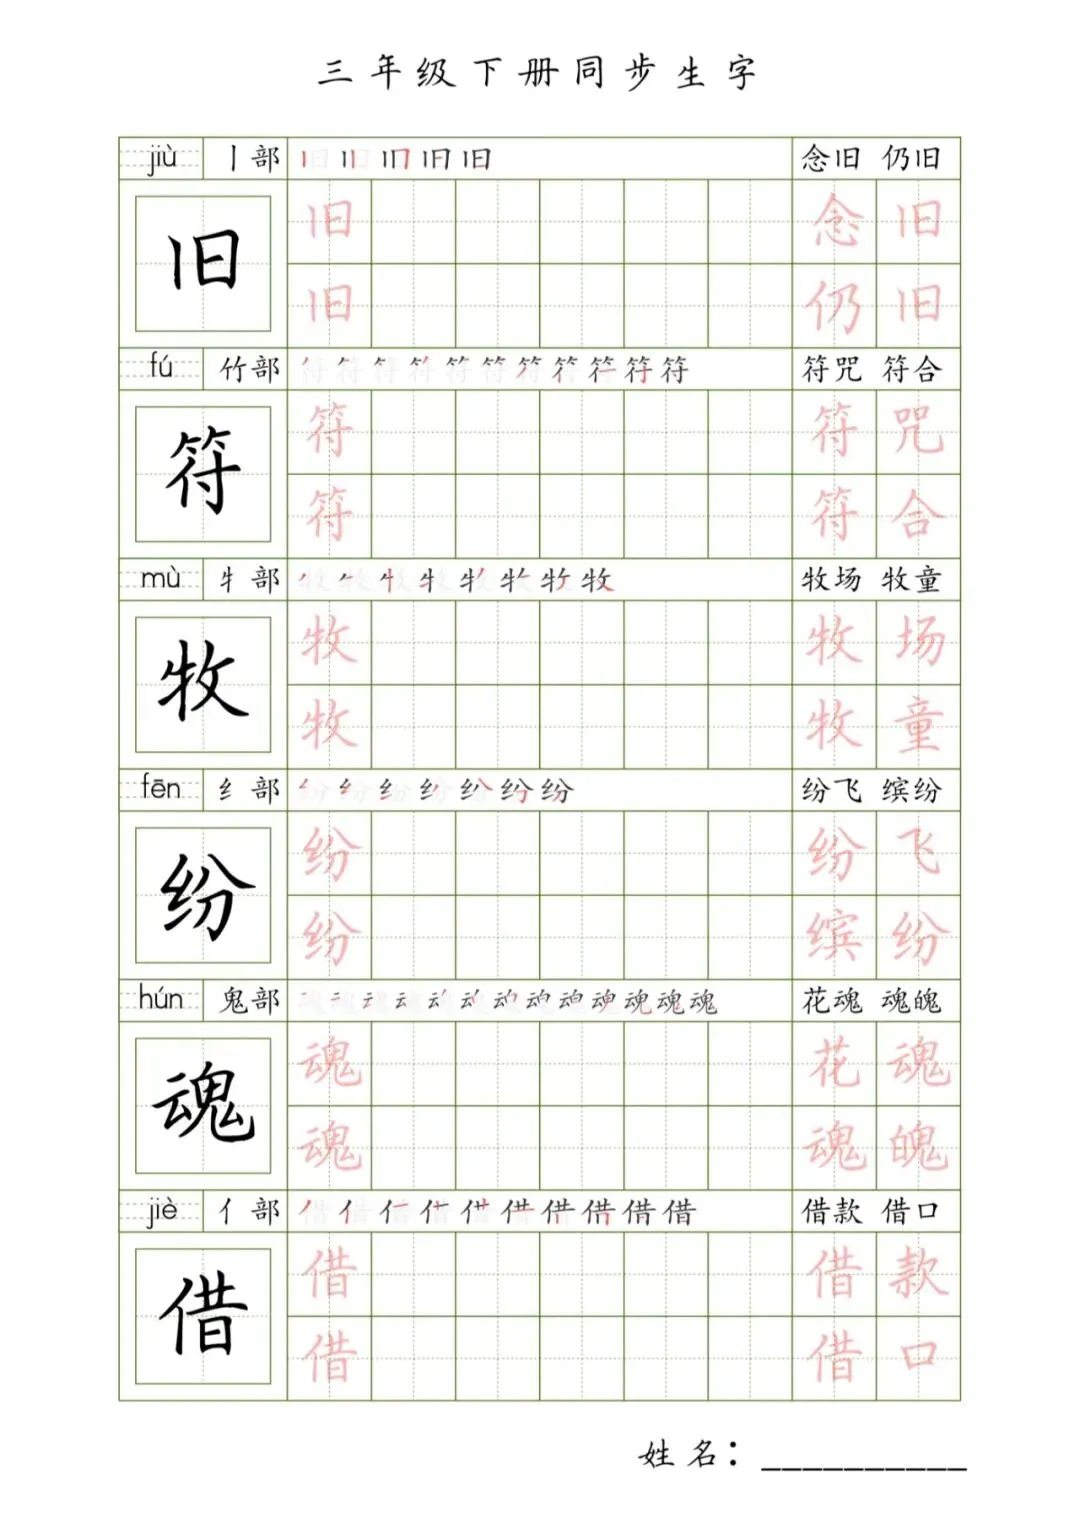 三年级下册同步生字
jiù 丨部 旧旧旧旧旧 念旧 仍旧
旧 旧 念旧
旧 仍旧
fú 竹部 符符符符符符符符符符符 符咒 符合
符 符 符咒
符 符合
mù 牜部 牧牧牧牧牧牧牧牧 牧场 牧童
牧 牧 牧场
牧 牧童
fēn 纟部 纷纷纷纷纷纷纷 纷飞 缤纷
纷 纷 纷飞
纷 缤纷
hún 鬼部 魂魂魂魂魂魂魂魂魂魂魂魂魂 花魂 魂魄
魂 魂 花魂
魂 魂魄
jiè 亻部 借借借借借借借借借借 借款 借口
借 借 借款
借 借口
姓名：__________